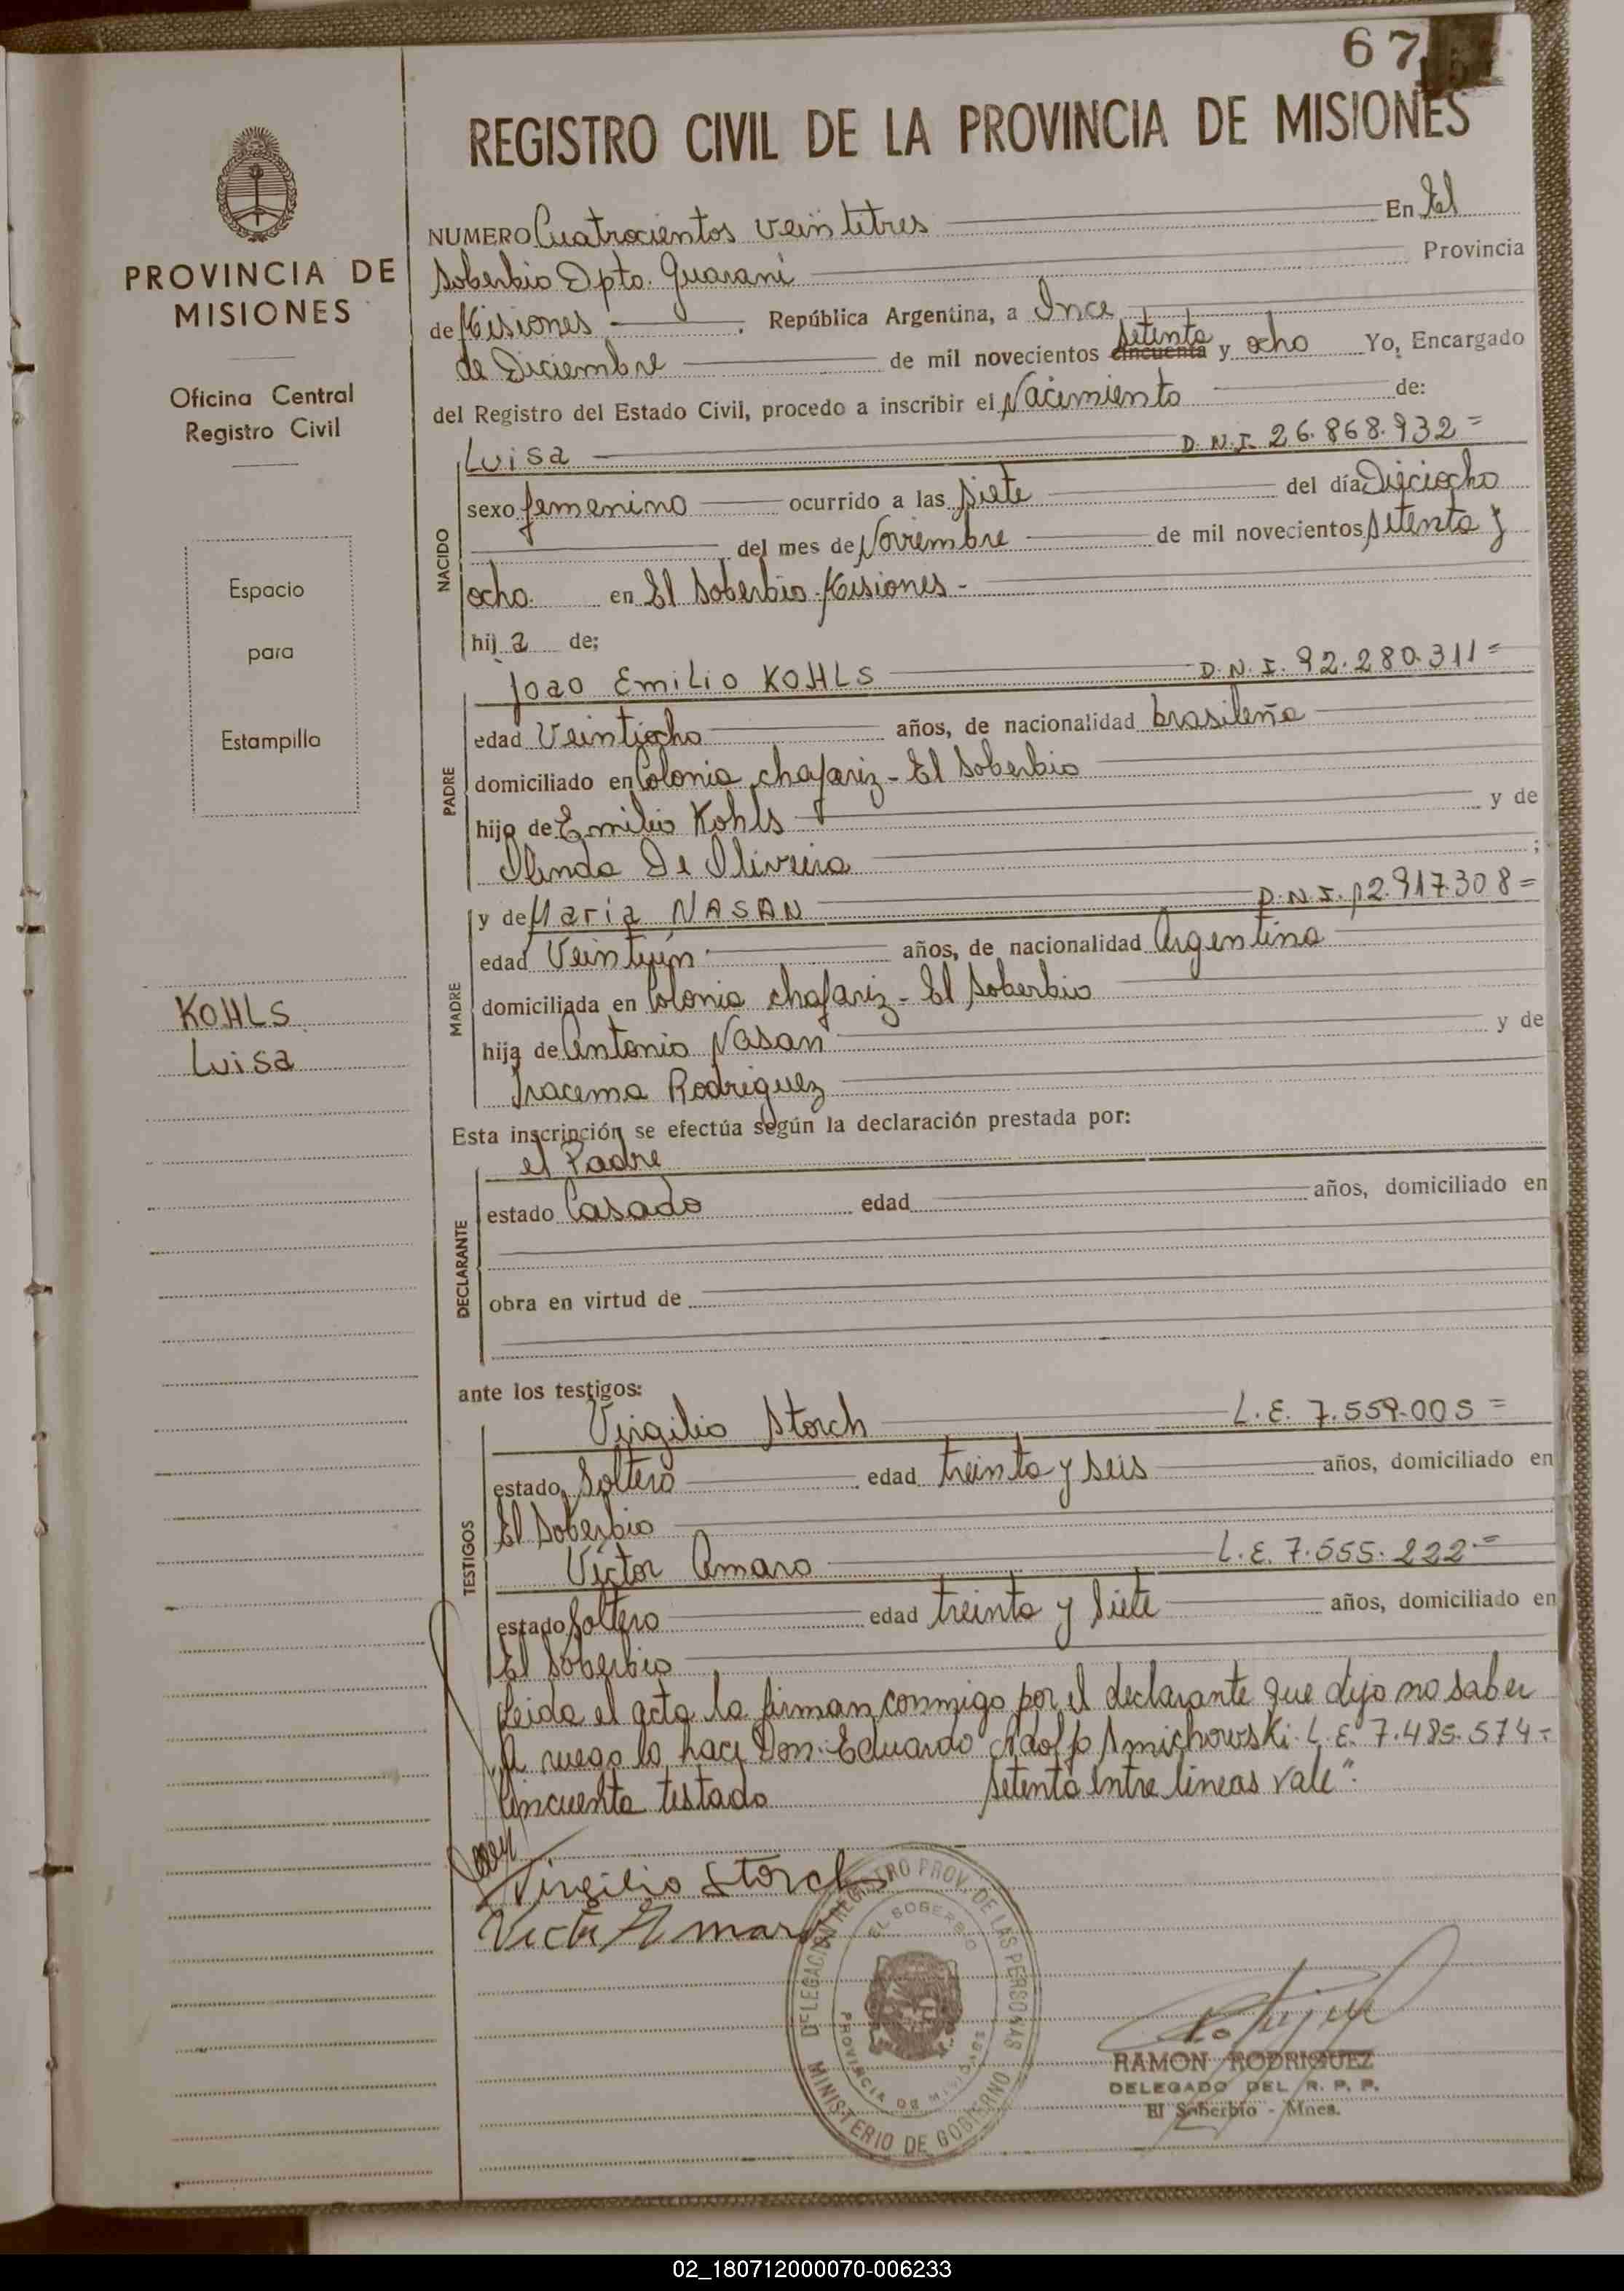 67
REGISTRO CIVIL DE LA PROVINCIA DE MISIONES
PROVINCIA DE
MISIONES
Oficina Central
Registro Civil
Espacio
para
Estampilla
KOHLS
Luisa
NUMERO Cuatrocientos veintitres En El
Soberbio Dpto. Guarani Provincia
de Misiones República Argentina, a Once
setenta
de Diciembre de mil novecientos cincuenta y ocho Yo, Encargado
del Registro del Estado Civil, procedo a inscribir el Nacimiento de:
Luisa D.N.I. 26.868.932=
NACIDO
sexo femenino ocurrido a las siete del día Dieciocho
del mes de Noviembre de mil novecientos setenta y
ocho. en El Soberbio-Misiones-
hija de;
Joao Emilio KOHLS D.N.I. 92.280.311=
PADRE
edad Veintiocho años, de nacionalidad brasileña
domiciliado en Colonia chafariz-El Soberbio
hijo de Emilio Kohls y de
Olinda De Oliveira ;
y de Maria NASAN D.N.I. 12.917.308=
MADRE
edad Veintiún años, de nacionalidad Argentina
domiciliada en Colonia chafariz-El Soberbio
hija de Antonio Nasan y de
Iracema Rodriguez
Esta inscripción se efectúa según la declaración prestada por:
el Padre
DECLARANTE
estado Casado edad años, domiciliado en
obra en virtud de
ante los testigos:
Virgilio Storch L.E. 7.559.005=
TESTIGOS
estado Soltero edad treinta y seis años, domiciliado en
El Soberbio
Víctor Amaro L.E. 7.555.222.=
estado Soltero edad treinta y Siete años, domiciliado en
El Soberbio
Leida el acta la firman conmigo por el declarante que dijo no saber
A ruego lo hace Don. Eduardo Adolfo Smichowski. L.E. 7.485.574=
Cincuenta testado setenta entre lineas vale".
Virgilio Storch
Victor Amaro
DELEGACION REGISTRO PROV. DE LAS PERSONAS
EL SOBERBIO
PROVINCIA DE MISIONES
MINISTERIO DE GOBIERNO
RAMON RODRIGUEZ
DELEGADO DEL R. P. P.
El Soberbio - Mnes.
02_180712000070-006233